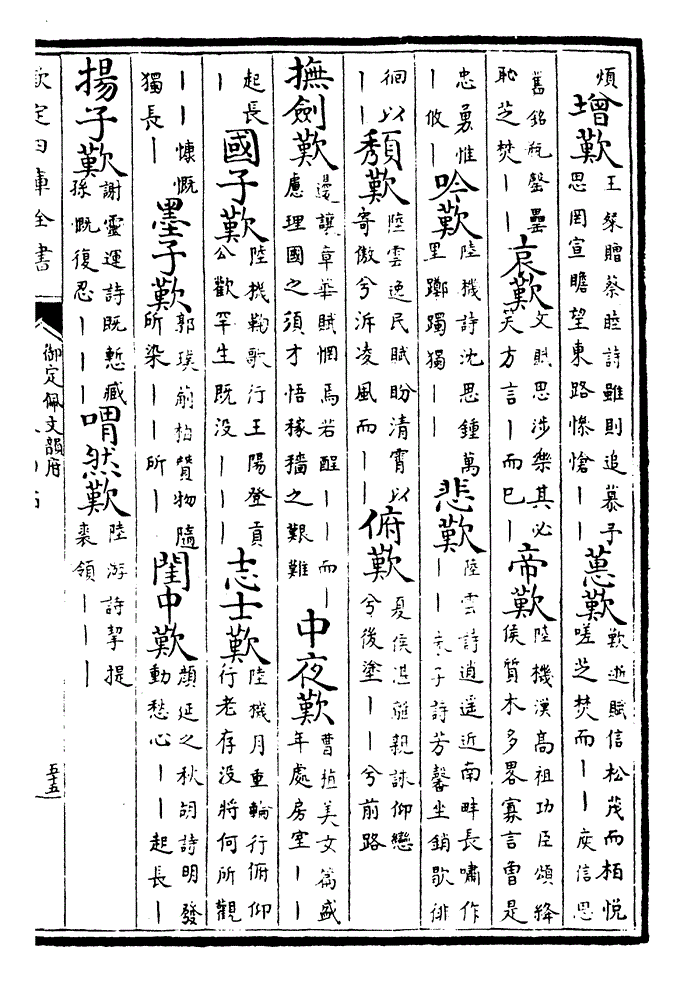 煩
增歎
王粲贈蔡睦詩雖則追慕予
思罔宣瞻望東路慘愴||
蕙歎
歎逝賦信松茂而柏悅
嗟芝焚而||庾信思
舊銘瓶罄罍
恥芝焚||
哀歎
文賦思涉樂其必
笑方言|而已|
帝歎
陸機漢高祖功臣頌絳
侯質木多畧寡言曾是
忠勇惟
|攸|
吟歎
陸機詩沈思鍾萬
里躑躅獨||
悲歎
陸雲詩逍遥近南畔長嘯作
||子詩芳馨坐銷歇徘
徊以
||
頽歎
陸雲逸民賦盼清霄以
寄傲兮泝凌風而||
俯歎
夏侯湛離親詠仰戀
兮後塗||兮前路
撫劍歎
邊讓章華賦惘焉若酲||而|
慮理國之須才悟稼穡之艱難
中夜歎
曹植美文篇盛
年處房室||
起長
|
國子歎
陸機鞠歌行王陽登貢
公歡罕生既没|||
志士歎
陸機月重輪行俯仰
行老存没將何所觀
||慷慨
獨長|
墨子歎
郭璞柏贊物隨
所染||所|
閨中歎
顔延之秋胡詩明發
動愁心||起長|
揚子歎
謝靈運詩既慙臧
孫慨復忍|||
喟然歎
陸游詩挈提
裘領|||
欽定四庫全書
御定佩文韻府
五十五